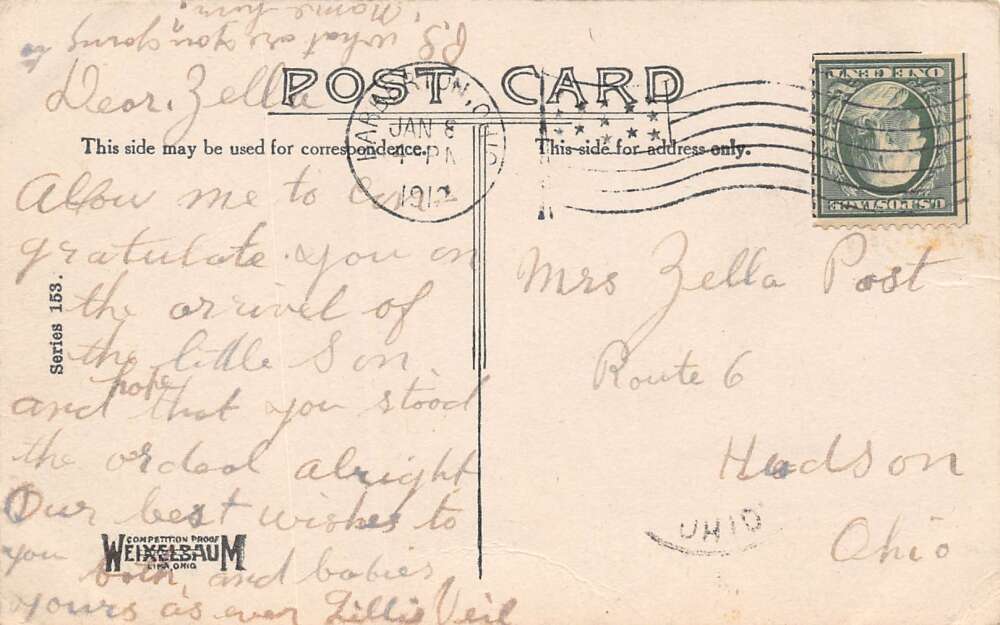 P.S. what are you going to
name him.
POST CARD
This side may be used for correspondence.
This side for address only.
BARBERTON, OHIO
JAN 8
PM
1912
ONE CENT
U.S. POSTAGE
Dear, Zella
Allow me to Con
gratulate you on
the arrivel of
the little Son
and hope that you stood
the ordeal alright
Our best wishes to
you both, and babies
yours as ever Lillie Veil
Series 153.
COMPETITION PROOF
WEIXELBAUM
LIMA, OHIO
Mrs Zella Post
Route 6
Hudson
Ohio
OHIO